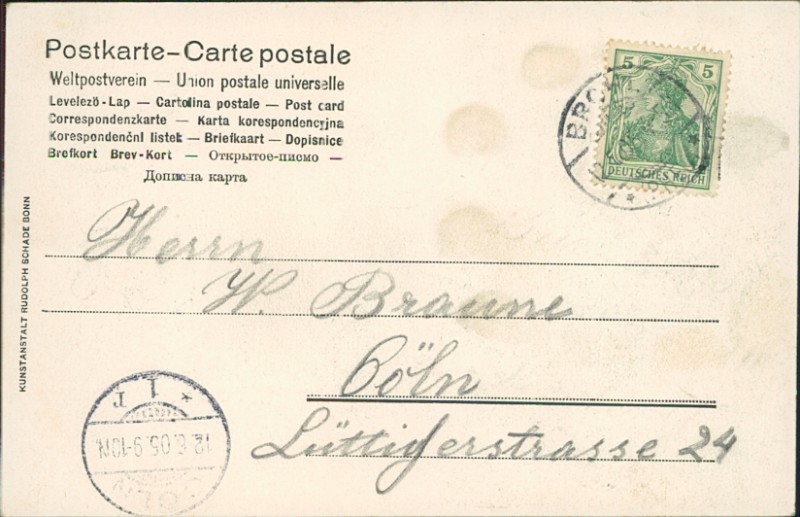 Postkarte–Carte postale
Weltpostverein — Union postale universelle
Levelező-Lap — Cartolina postale — Post card
Correspondenzkarte — Karta korespondencyjna
Korespondenční listek — Briefkaart — Dopisnice
Brefkort Brev-Kort — Открытое-писмо —
Дописна карта
5 5
DEUTSCHES REICH
KUNSTANSTALT RUDOLPH SCHADE BONN
Herrn
W. Braune
Cöln
Lüttigerstrasse 24
* 1 r
12.6.05.9-10N.